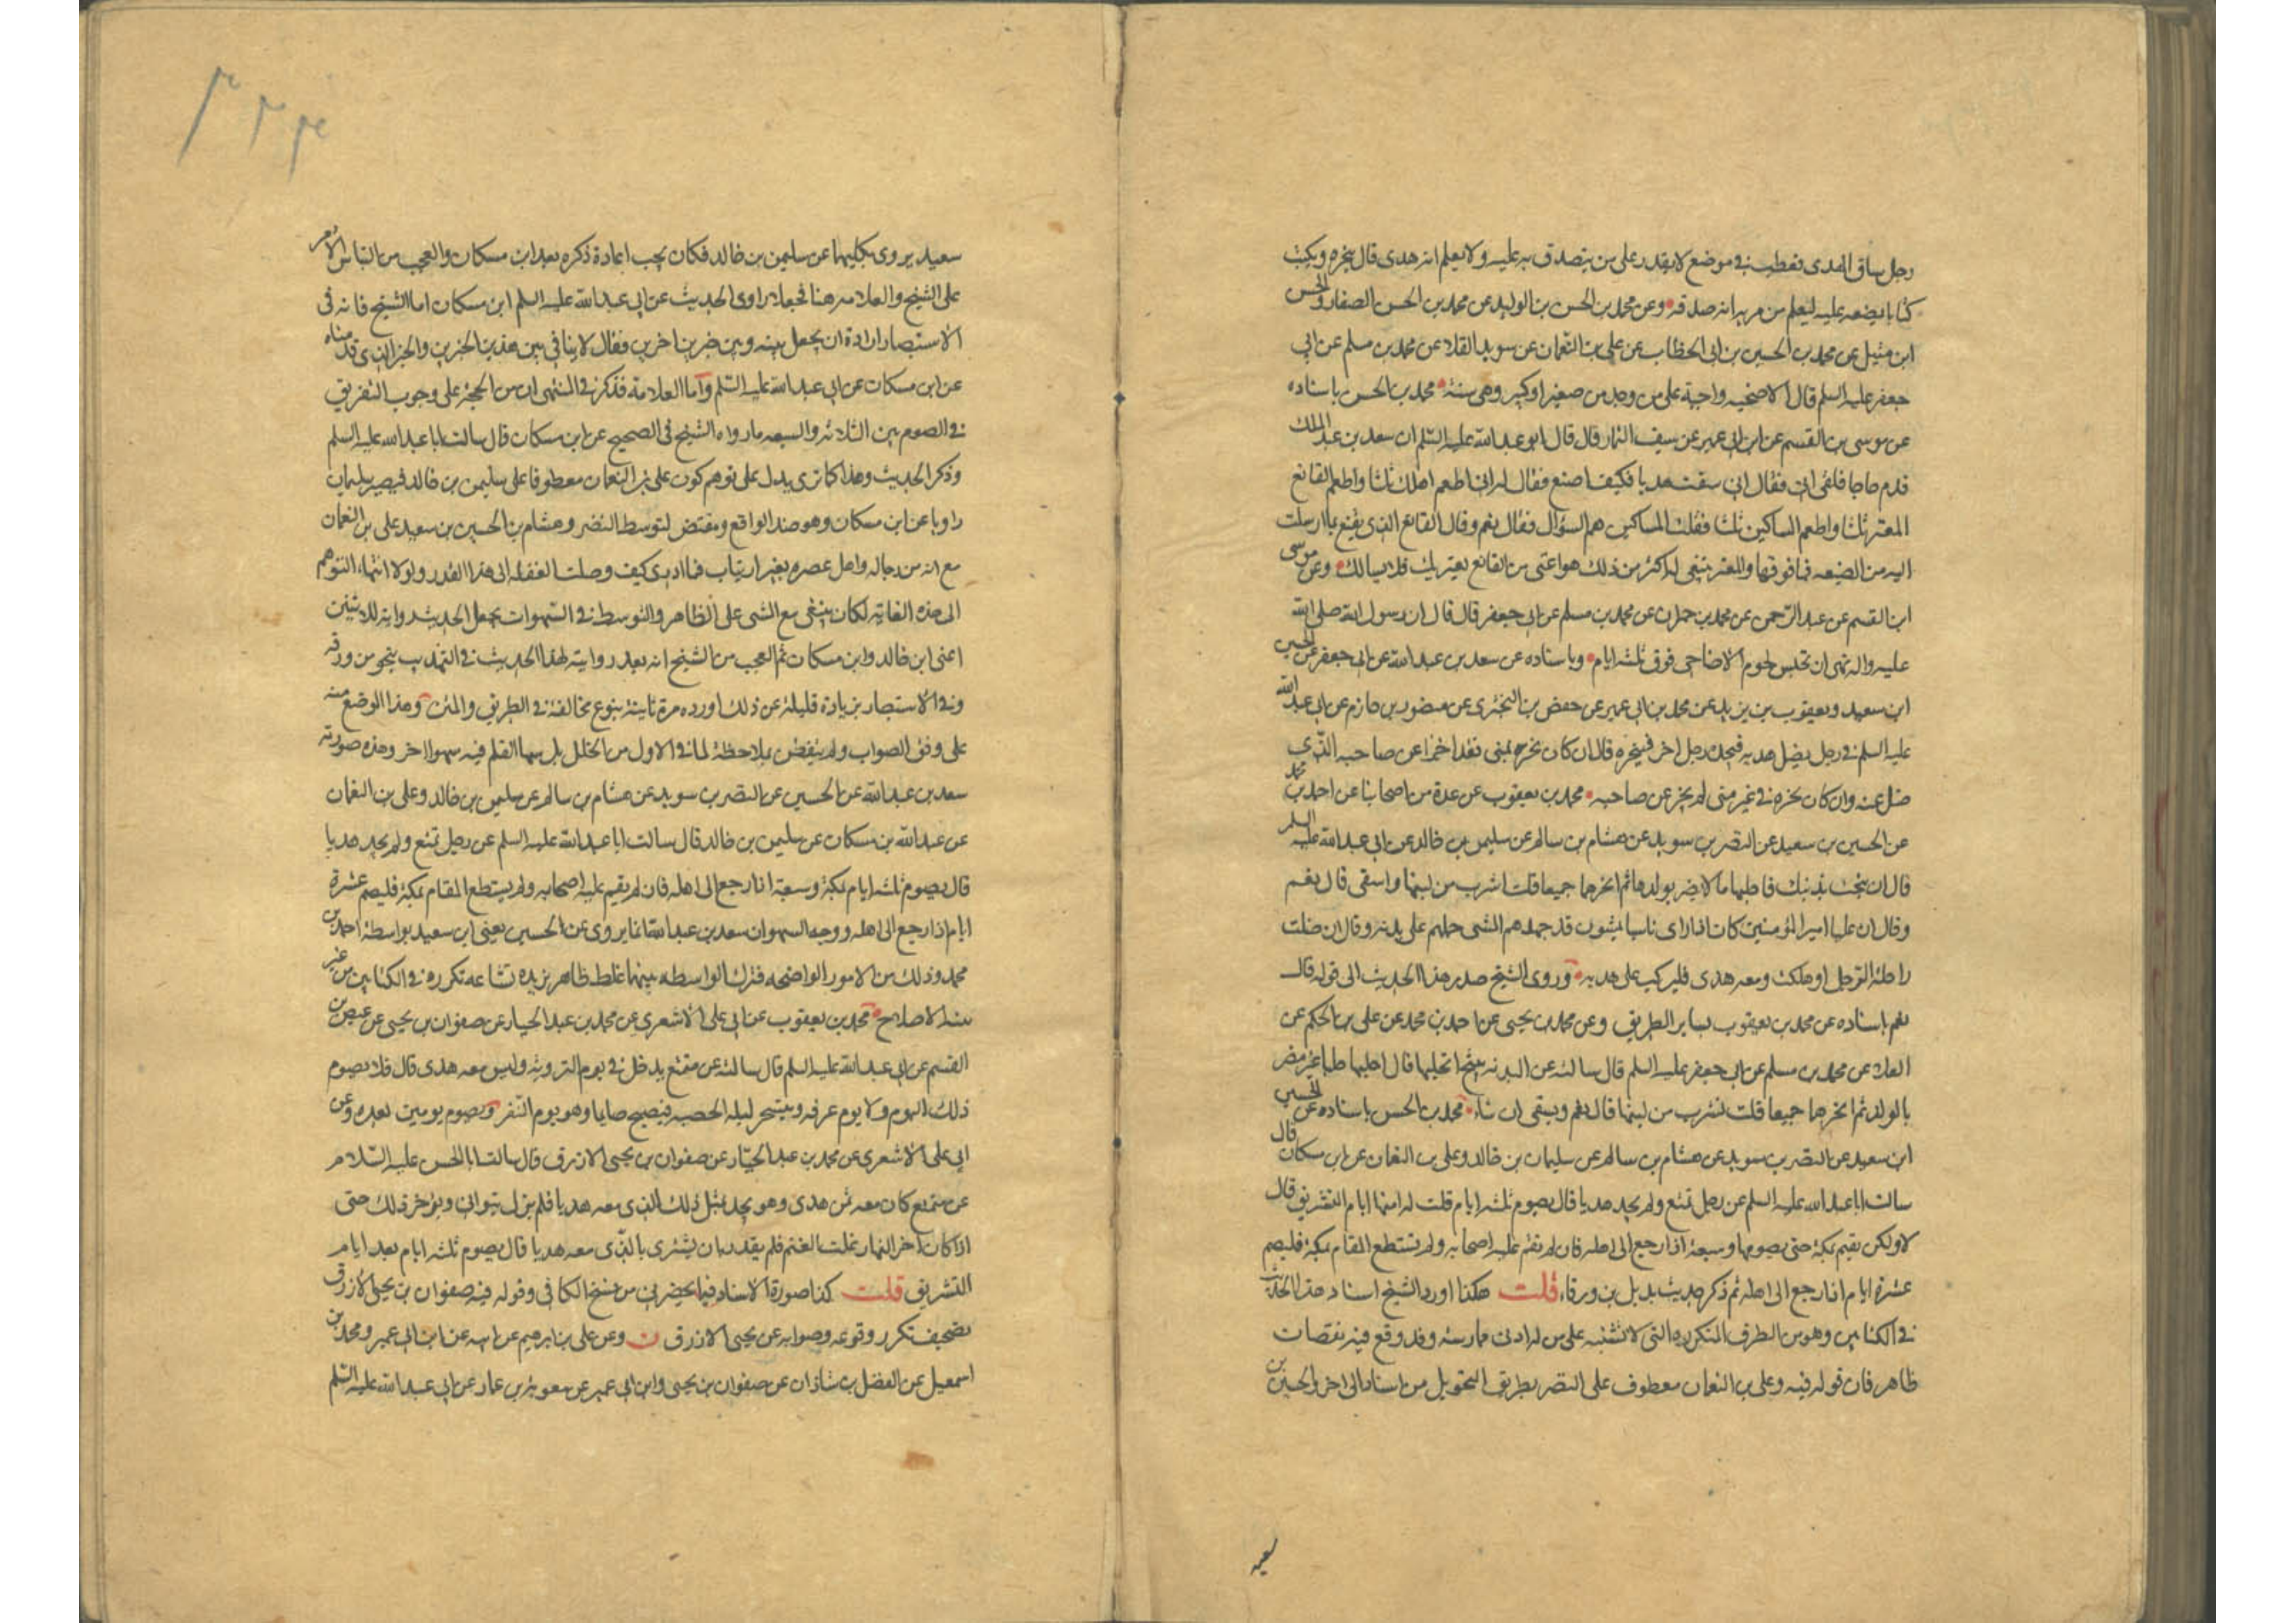 رجل ساق الهدى فعطب فى موضع لا يقدر على من يتصدق به عليه ولا يعلم انه هدى قال ينحره ويكتب
كتابا يضعه عليه ليعلم من مر به انه صدقه وعن محمد بن الحسن بن الوليد عن محمد بن الحسن الصفار والحسن
ابن متيل عن محمد بن الحسين بن ابى الخطاب عن على بن النعمان عن سويد القلا عن محمد بن مسلم عن ابى
جعفر عليه السلم قال الاضحيه واجبة على من وجد من صغير او كبير وهى سنة محمد بن الحسن باسناده
عن موسى بن القسم عن ابن ابى عمير عن سيف التمار قال قال ابو عبد الله عليه السلم ان سعد بن عبد الملك
قدم حاجا فلقى ابى فقال انى سقت هديا فكيف اصنع فقال له ابى اطعم اهلك ثلثا واطعم القانع
المعتر ثلثا واطعم المساكين ثلثا فقلت المساكين هم السؤال فقال نعم وقال القانع الذى يقنع بما ارسلت
اليه من البضعه فما فوقها والمعتر ينبغى له اكثر من ذلك هو اغنى من القانع يعتريك فلا يسالك وعن موسى
ابن القسم عن عبد الرحمن عن محمد بن حمران عن محمد بن مسلم عن ابى جعفر قال قال ان رسول الله صلى الله
عليه واله نهى ان تحبس لحوم الاضاحى فوق ثلثه ايام وباسناده عن سعد بن عبد الله عن ابى جعفر عن الحسين
ابن سعيد ويعقوب بن يزيد عن محمد بن ابى عمير عن حفص بن البخترى عن منصور بن حازم عن ابى عبد الله
عليه السلم فى رجل يضل هديه فيجده رجل اخر فينحره قال ان كان نحره بمنى فقد اجزا عن صاحبه الذى
ضل عنه وان كان نحره فى غير منى لم يجز عن صاحبه محمد بن يعقوب عن عدة من اصحابنا عن احمد بن محمد
عن الحسين بن سعيد عن النضر بن سويد عن هشام بن سالم عن سليمن بن خالد عن ابى عبد الله عليه السلم
قال ان نتجت بدنتك فاحلبها ما لا يضر بولدها ثم انحرهما جميعا قلت اشرب من لبنها واسقى قال نعم
وقال ان عليا امير المؤمنين كان اذا راى ناسا يمشون قد جهدهم المشى حملهم على بدنه وقال ان ضلت
راحلة الرجل او هلكت ومعه هدى فليركب على هديه وروى الشيخ صدر هذا الحديث الى قوله قال
نعم باسناده عن محمد بن يعقوب بساير الطريق وعن محمد بن يحيى عن احمد بن محمد عن على بن الحكم عن
العلا عن محمد بن مسلم عن ابى جعفر عليه السلم قال سالته عن البدنه ينتج انحلبها قال احلبها حلبا غير مضر
بالولد ثم انحرهما جميعا قلت نشرب من لبنها قال نعم ويسقى ان شاء محمد بن الحسن باسناده عن الحسين
ابن سعيد عن النضر بن سويد عن هشام بن سالم عن سليمان بن خالد وعلى بن النعمان عن ابن مسكان قال
سالت ابا عبد الله عليه السلم عن رجل تمتع ولم يجد هديا قال يصوم ثلثه ايام قلت له امنها ايام التشريق قال
لا ولكن يقيم بمكة حتى يصومها وسبعة اذا رجع الى اهله فان لم تقم عليه اصحابه ولم يستطع المقام بمكة فليصم
عشرة ايام اذا رجع الى اهله ثم ذكر حديث بديل بن ورقاء قلت هكذا اورد الشيخ اسناد هذا الحديث
فى الكتابين وهو من الطرق المتكرره التى لا تشتبه على من له ادنى ممارسة وقد وقع فيه نقصان
ظاهر فان قوله فيه وعلى بن النعمان معطوف على النضر بطريق التحويل من اسناد الى اخر والحسين بن
سعيد
سعيد يروى بكليهما عن سليمن بن خالد فكان يجب اعادة ذكره بعد ابن مسكان والعجب من التباس الامر
على الشيخ والعلامه هنا فجعلا راوى الحديث عن ابى عبد الله عليه السلم ابن مسكان اما الشيخ فانه فى
الاستبصار اراد ان يجعل بينه وبين خبرين اخرين فقال لا ينافى بين هذين الخبرين والخبر الذى قدمناه
عن ابن مسكان عن ابى عبد الله عليه السلم واما العلامة فذكر فى المنتهى ان من الحجة على وجوب التفريق
فى الصوم بين الثلاثه والسبعه ما رواه الشيخ فى الصحيح عن ابن مسكان قال سالت ابا عبد الله عليه السلم
وذكر الحديث وهذا كما ترى يدل على توهم كون على بن النعمان معطوفا على سليمن بن خالد فيصير سليمان
راويا عن ابن مسكان وهو ضد الواقع ومقتض لتوسط النضر وهشام بن الحسين بن سعيد على بن النعمان
مع انه من رجاله واهل عصره بغير ارتياب فما ادرى كيف وصلت الغفلة الى هذا القدر ولولا انتهاء التوهم
الى هذه الغايه لكان ينبغى مع المشى على الظاهر والتوسط فى السهوات يجعل الحديث روايه للاثنين
اعنى ابن خالد وابن مسكان ثم العجب من الشيخ انه بعد روايته لهذا الحديث فى التهذيب بنحو من ورقه
وفى الاستبصار بزيادة قليلة عن ذلك اورده مرة ثانية بنوع مخالفة فى الطريق والمتن وهذا الوضع منه
على وفق الصواب ولم يتفطن بملاحظة لما فى الاول من الخلل بل سها القلم فيه سهوا اخر وهذه صورته
سعد بن عبد الله عن الحسين عن النضر بن سويد عن هشام بن سالم عن سليمن بن خالد وعلى بن النعمان
عن عبد الله بن مسكان عن سليمن بن خالد قال سالت ابا عبد الله عليه السلم عن رجل تمتع ولم يجد هديا
قال يصوم ثلثه ايام بمكة وسبعة اذا رجع الى اهله فان لم يقيم عليه اصحابه ولم يستطع المقام بمكة فليصم عشرة
ايام اذا رجع الى اهله ووجه السهو ان سعد بن عبد الله انما يروى عن الحسين يعنى ابن سعيد بواسطة احمد بن
محمد وذلك من الامور الواضحه فترك الواسطه بينهما غلط ظاهر تكرره فى الكتابين من غير
الاصلاح محمد بن يعقوب عن ابى على الاشعرى عن محمد بن عبد الجبار عن صفوان بن يحيى عن عيص بن
القسم عن ابى عبد الله عليه السلم قال سالته عن متمتع يدخل فى يوم الترويه وليس معه هدى قال فلا يصوم
ذلك اليوم ولا يوم عرفه ويتسحر ليله الحصبه فيصبح صايما وهو يوم النفر ويصوم يومين بعده وعن
ابى على الاشعرى عن محمد بن عبد الجبار عن صفوان بن يحيى الازرق قال سالت ابا الحسن عليه السلام
عن متمتع كان معه ثمن هدى وهو يجد بمثل ذلك الذى معه هديا فلم يزل يتوانى ويؤخر ذلك حتى
اذا كان اخر النهار غلت الغنم فلم يقدر بان يشترى بالذى معه هديا قال يصوم ثلثه ايام بعد ايام
التشريق قلت كذا صورة الاسناد فيما يحضرنى من نسخ الكافى وقوله فيه صفوان بن يحيى الازرق
تصحيف تكرر وقوعه وصوابه عن يحيى الازرق ن وعن على بن ابرهيم عن ابيه عن ابن ابى عمير ومحمد بن
اسمعيل عن الفضل بن شاذان عن صفوان بن يحيى وابن ابى عمير عن معوية بن عمار عن ابى عبد الله عليه السلم